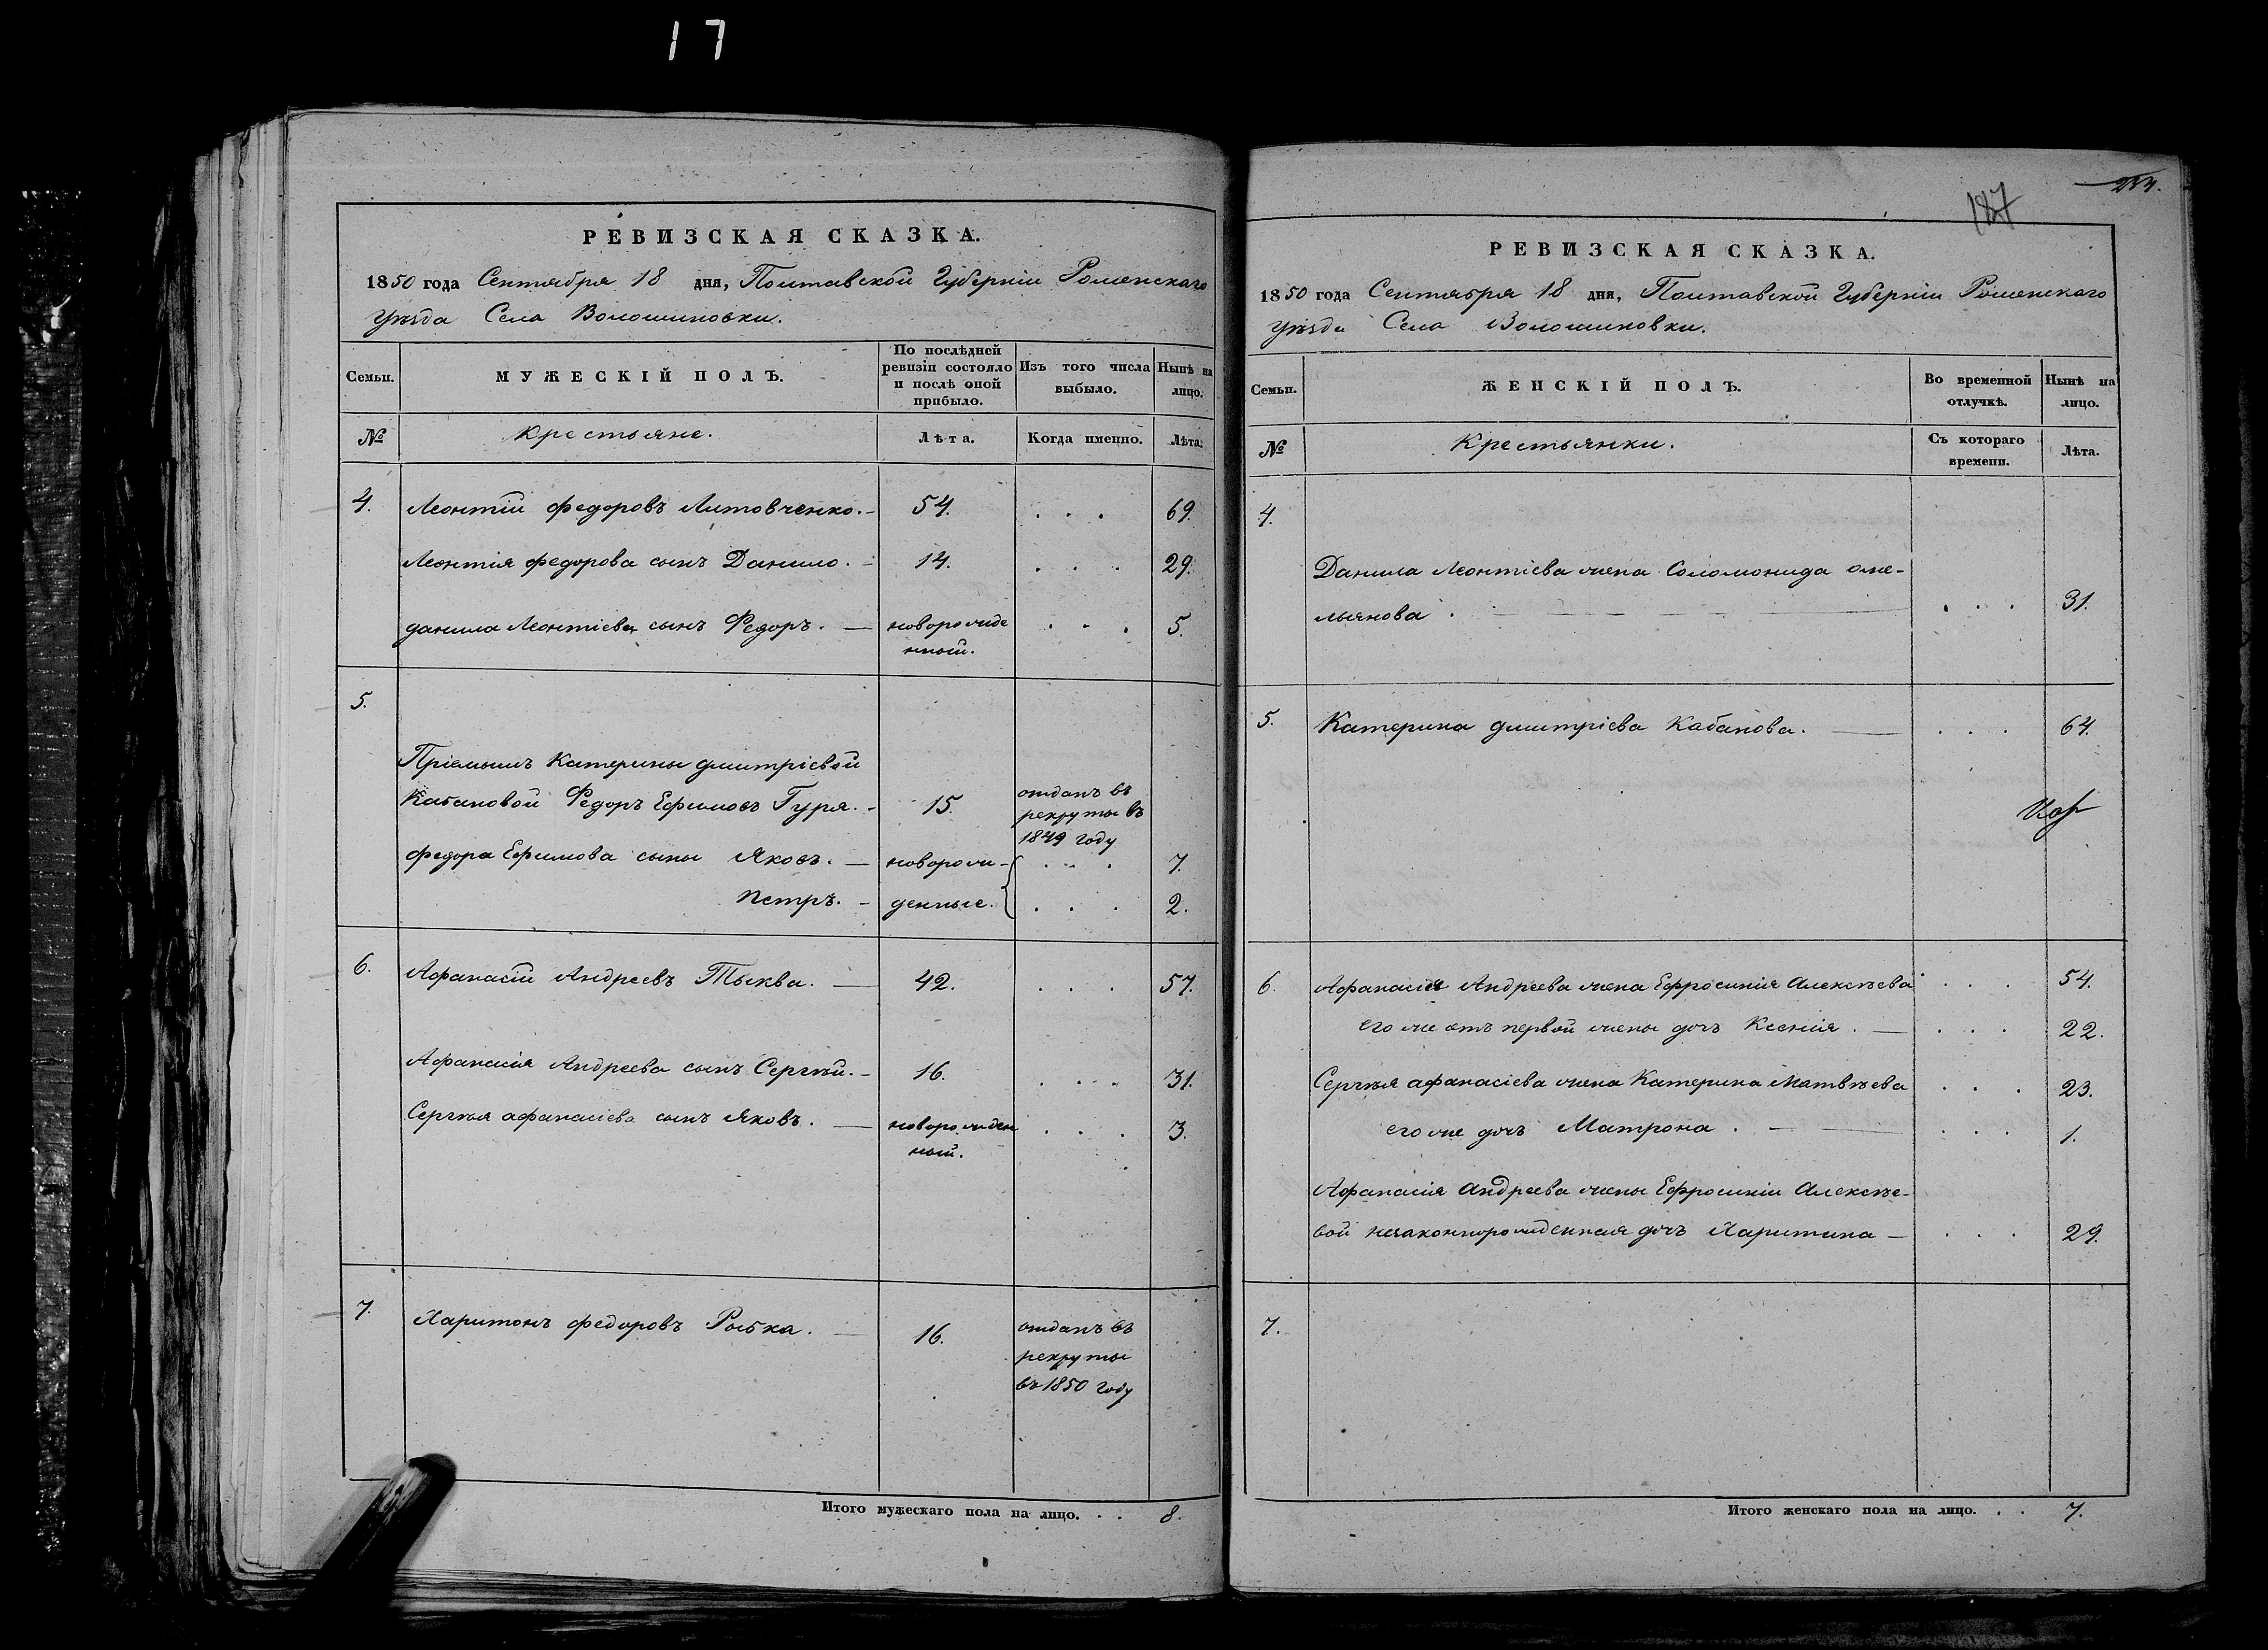 17
РЕВИЗСКАЯ СКАЗКА.
1850 года Сентября 18 дня, Полтавской Губерніи Роменскаго
Уѣзда Села Волошиновки.
Семьи.
МУЖЕСКІЙ ПОЛЪ.
По послѣдней
ревизіи состояло
и послѣ оной
прибыло.
Изъ того числа
выбыло.
Нынѣ на
лицо.
№
Крестьяне.
Лѣта.
Когда именно.
Лѣта.
4. Леонтій Федоровъ Литовченко. — 54. . . . 69.
Леонтія Федорова сынъ Данило. — 14. . . . 29.
Данила Леонтіева сынъ Федоръ. — новорожде . . . 5.
нный.
5.
Пріемышъ Катерины Дмитріевой
Кабановой Федоръ Ефимовъ Гуря. — 15. отданъ въ
рекруты въ
1849 году
Федора Ефимова сыны Яковъ. — новорож- . . . 7.
Петръ. — денные. . . . 2.
6. Афанасій Андреевъ Тыква. — 42. . . . 57.
Афанасія Андреева сынъ Сергѣй. — 16. . . . 31.
Сергѣя Афанасіева сынъ Яковъ. — новорожден . . . 3.
ный.
7. Харитонъ Федоровъ Рыбка. — 16. отданъ въ
рекруты
въ 1850 году
Итого мужескаго пола на лицо. . . 8.
187
РЕВИЗСКАЯ СКАЗКА.
1850 года Сентября 18 дня, Полтавской Губерніи Роменскаго
Уѣзда Села Волошиновки.
Семьи.
ЖЕНСКІЙ ПОЛЪ.
Во временной
отлучкѣ.
Нынѣ на
лицо.
№
Крестьянки.
Съ котораго
времени.
Лѣта.
4.
Данила Леонтіева жена Соломонида Оме-
льянова . — . . . 31.
5. Катерина Дмитріева Кабанова. — . . . 64.
6. Афанасія Андреева жена Ефросинія Алексѣева . . . 54.
его же отъ первой жены дочь Ксенія. — . . . 22.
Сергѣя Афанасіева жена Катерина Матвѣева . . . 23.
его же дочь Матрона . — . . . 1.
Афанасія Андреева жены Ефросиніи Алексѣе-
вой незаконнорожденная дочь Харитина — . . . 29.
7.
Итого женскаго пола на лицо. . . 7.